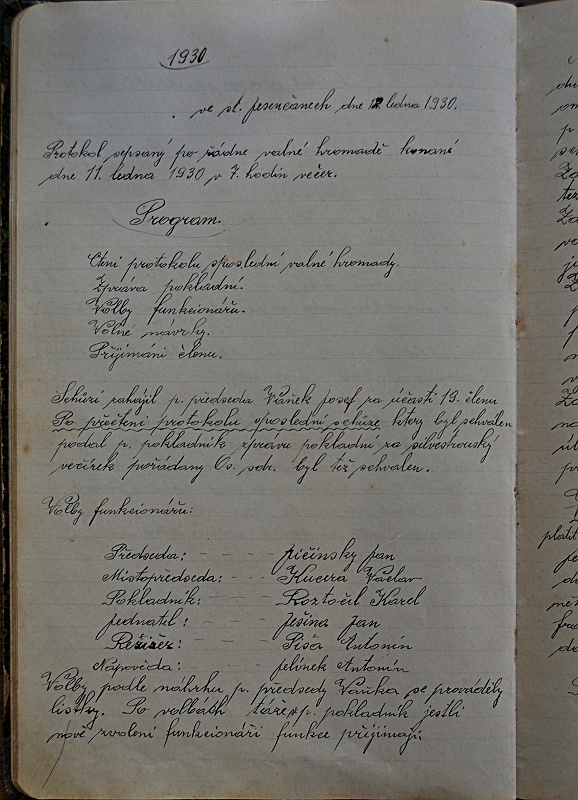 1930
ve st. Jesenčanech dne 12. ledna 1930.
Protokol sepsaný po řádne valné hromadě konané
dne 11. ledna 1930 v 7. hodin večer.
Program.
Čteni protokolu sposlední valné hromady.
Zpráva pokladní.
Volby funkcionářu.
Volné návrhy.
Přijímáni členu.
Schůzi zahájil p. předseda Vaněk Josef za účasti 19. členu
Po přečteni protokolu sposlední schůze ktery byl schválen
podal p. pokladník zprávu pokladní za silvestrouský
večírek pořádany Os. sdr. byl též schvalen.
Volby funkcionářu:
Předseda: - - - - Jičínsky Jan
Mistopředseda: - - - Kucera Václav
Pokladník: - - - Roztočil Karel
Jednatel: - - - Ješina Jan
Režisér: - - - Píša Antonín
Nápověda: - - - Jelínek Antonín
Volby podle náhrhu p. předsedy Vaňka se prováděly
lístky. Po volbách táže p. pokladník jestli
nově zvolení funkcionáři funkce přijímaji.